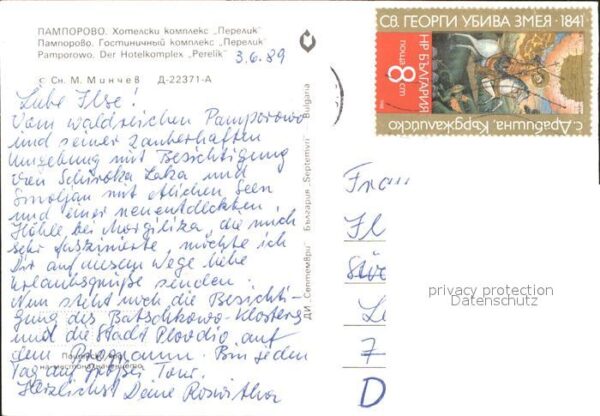 ПАМПОРОВО. Хотелски комплекс „Перелик"
Пампорово. Гостиничный комплекс „Перелик"
Pamporowo. Der Hotelkomplex „Perelik"
3.6.89
с Сн. М. Минчев Д-22371-А
Liebe Ilse!
Vom waldreichen Pamporowo
und seiner zauberhaften
Umgebung mit Besichtigung
von Schiroka Laka und
Smoljan mit etlichen Seen
und einer neuentdeckten
Höhle bei Mogiliza, die mich
sehr faszinierte, möchte ich
Dir auf diesem Wege liebe
Urlaubsgrüße senden.
Nun steht noch die Besichti-
gung des Batschkowo-Klosters
und die Stadt Plovdiv auf
dem Programm. Bin jeden
Tag auf großer Tour.
Herzlichst Deine Roswitha
ДИ „Септември" България „Septemvri" Bulgaria
СВ. ГЕОРГИ УБИВА ЗМЕЯ·1841
НР БЪЛГАРИЯ
поща 8 ст
с. Драбишна, Кърджалийско
Frau
Il
Le
7
D
privacy protection
Datenschutz